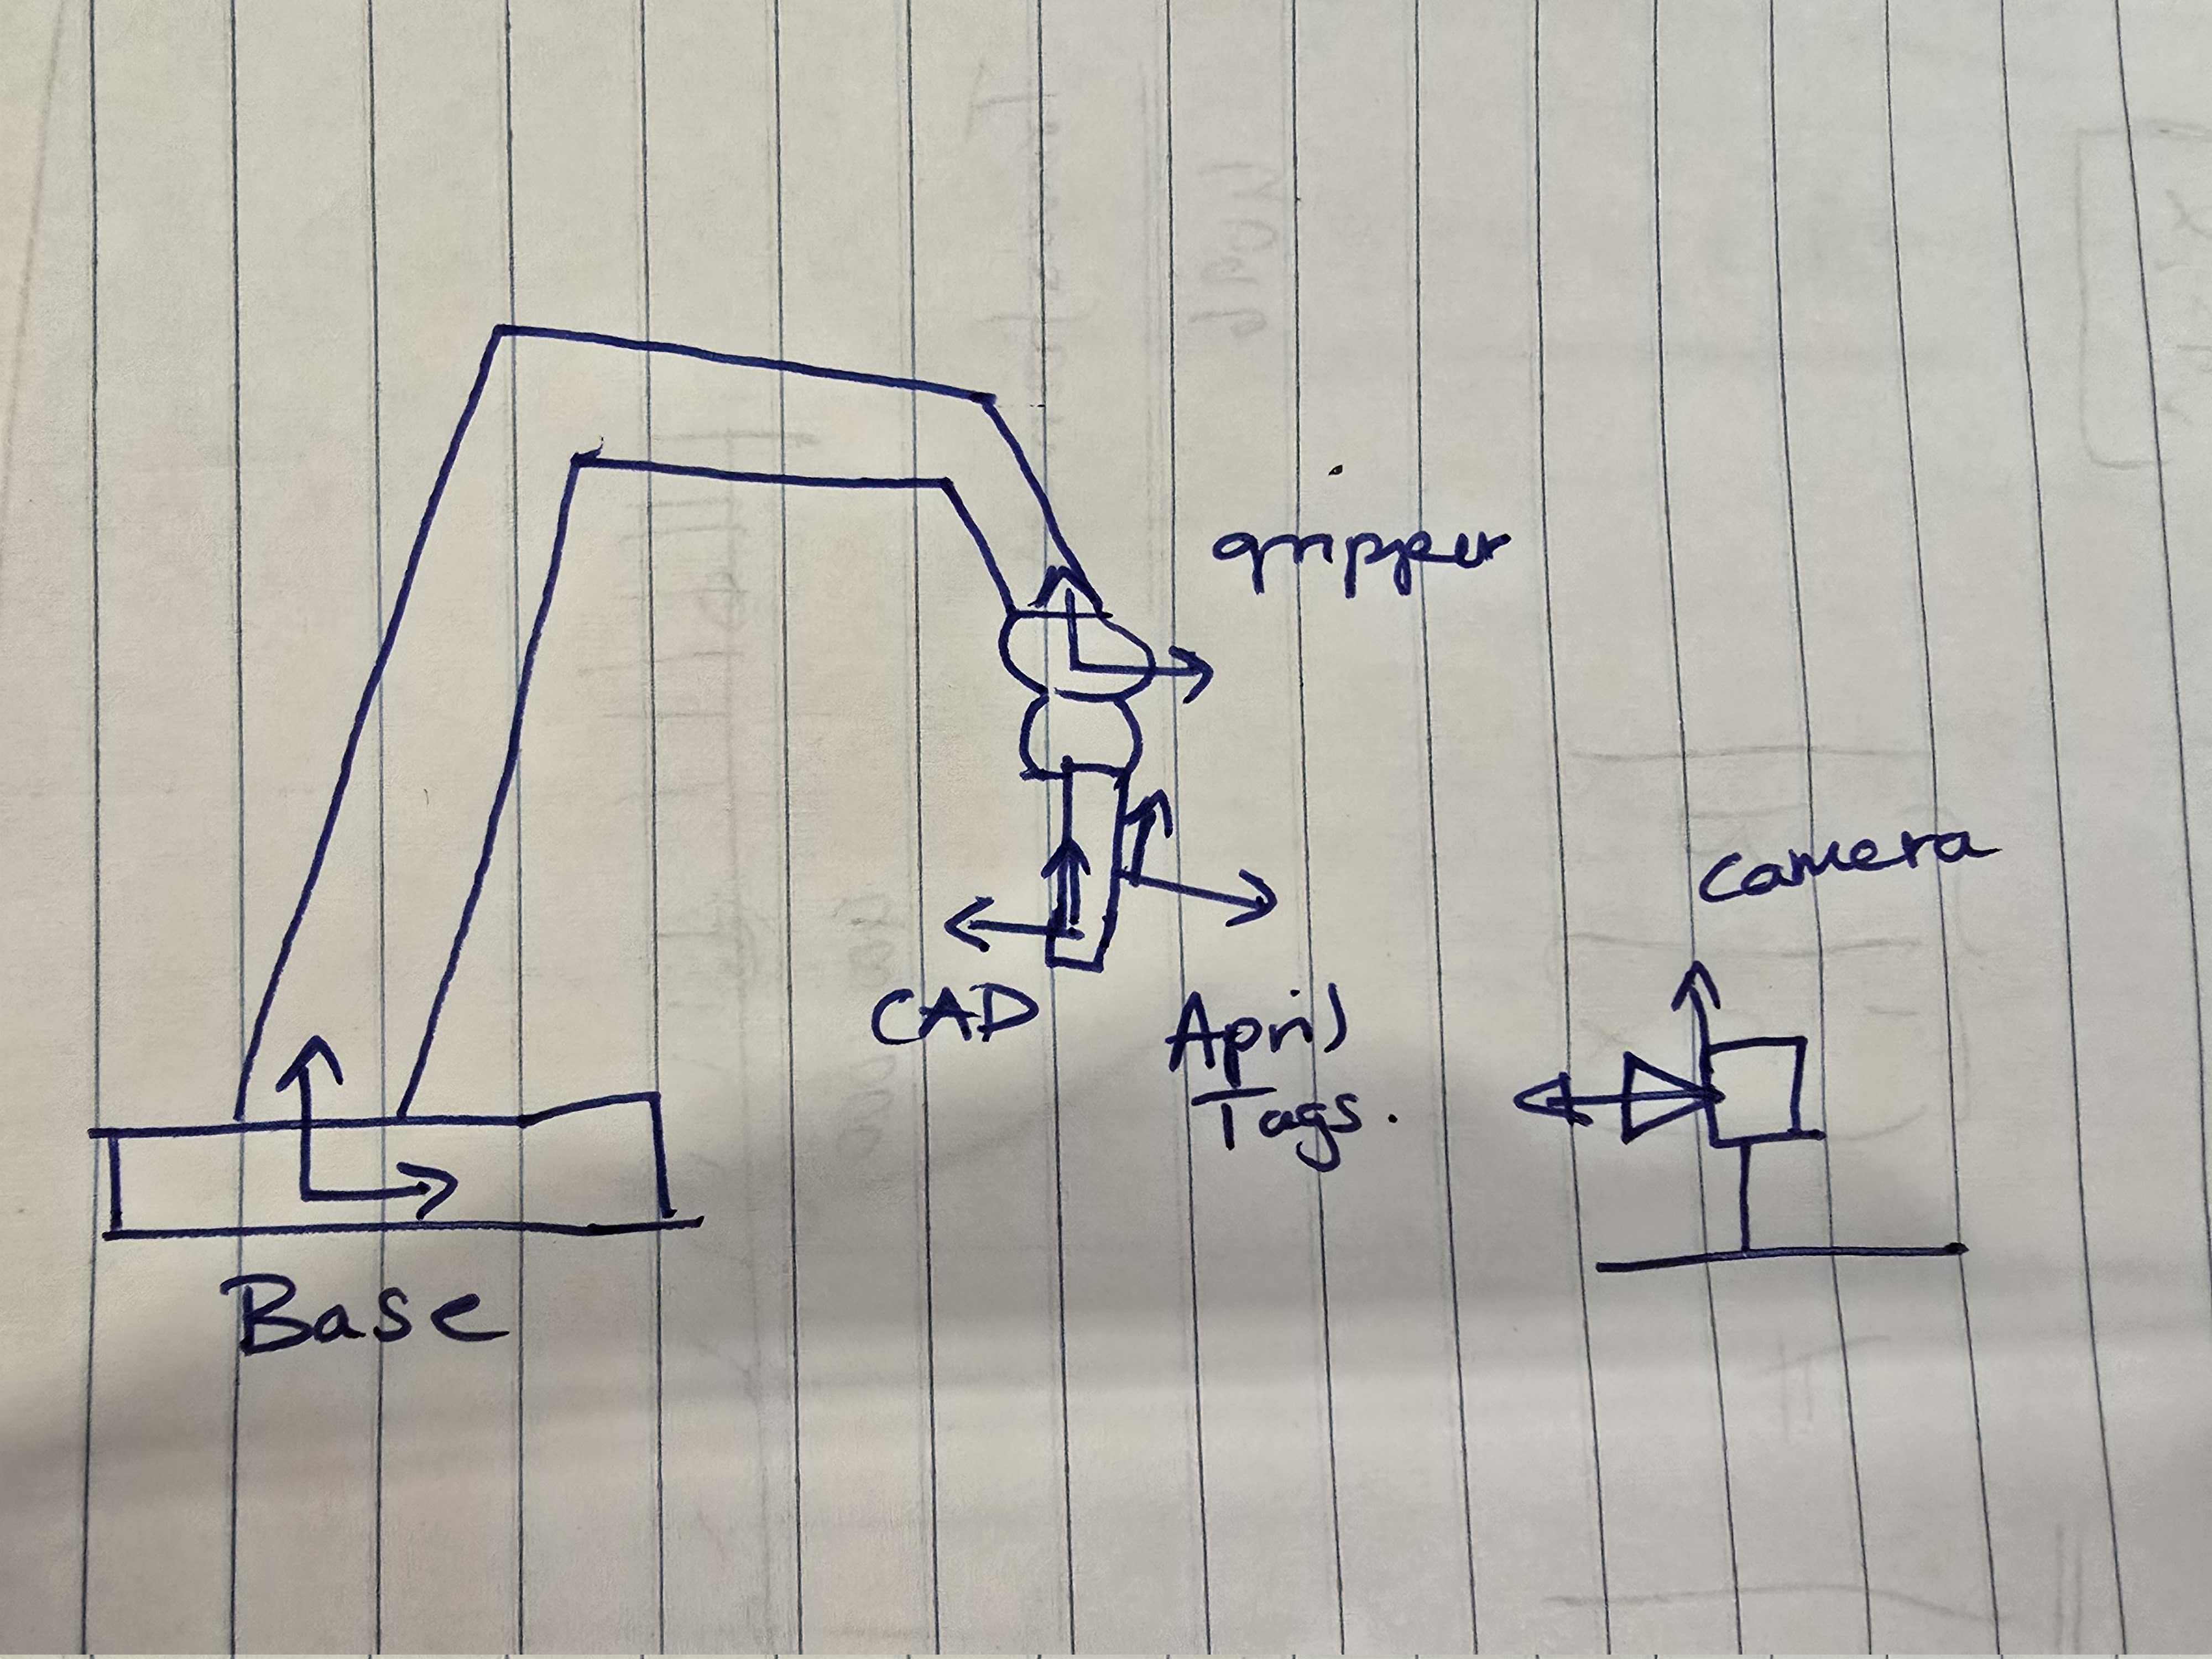 gripper
camera
CAD
April
Tags.
Base